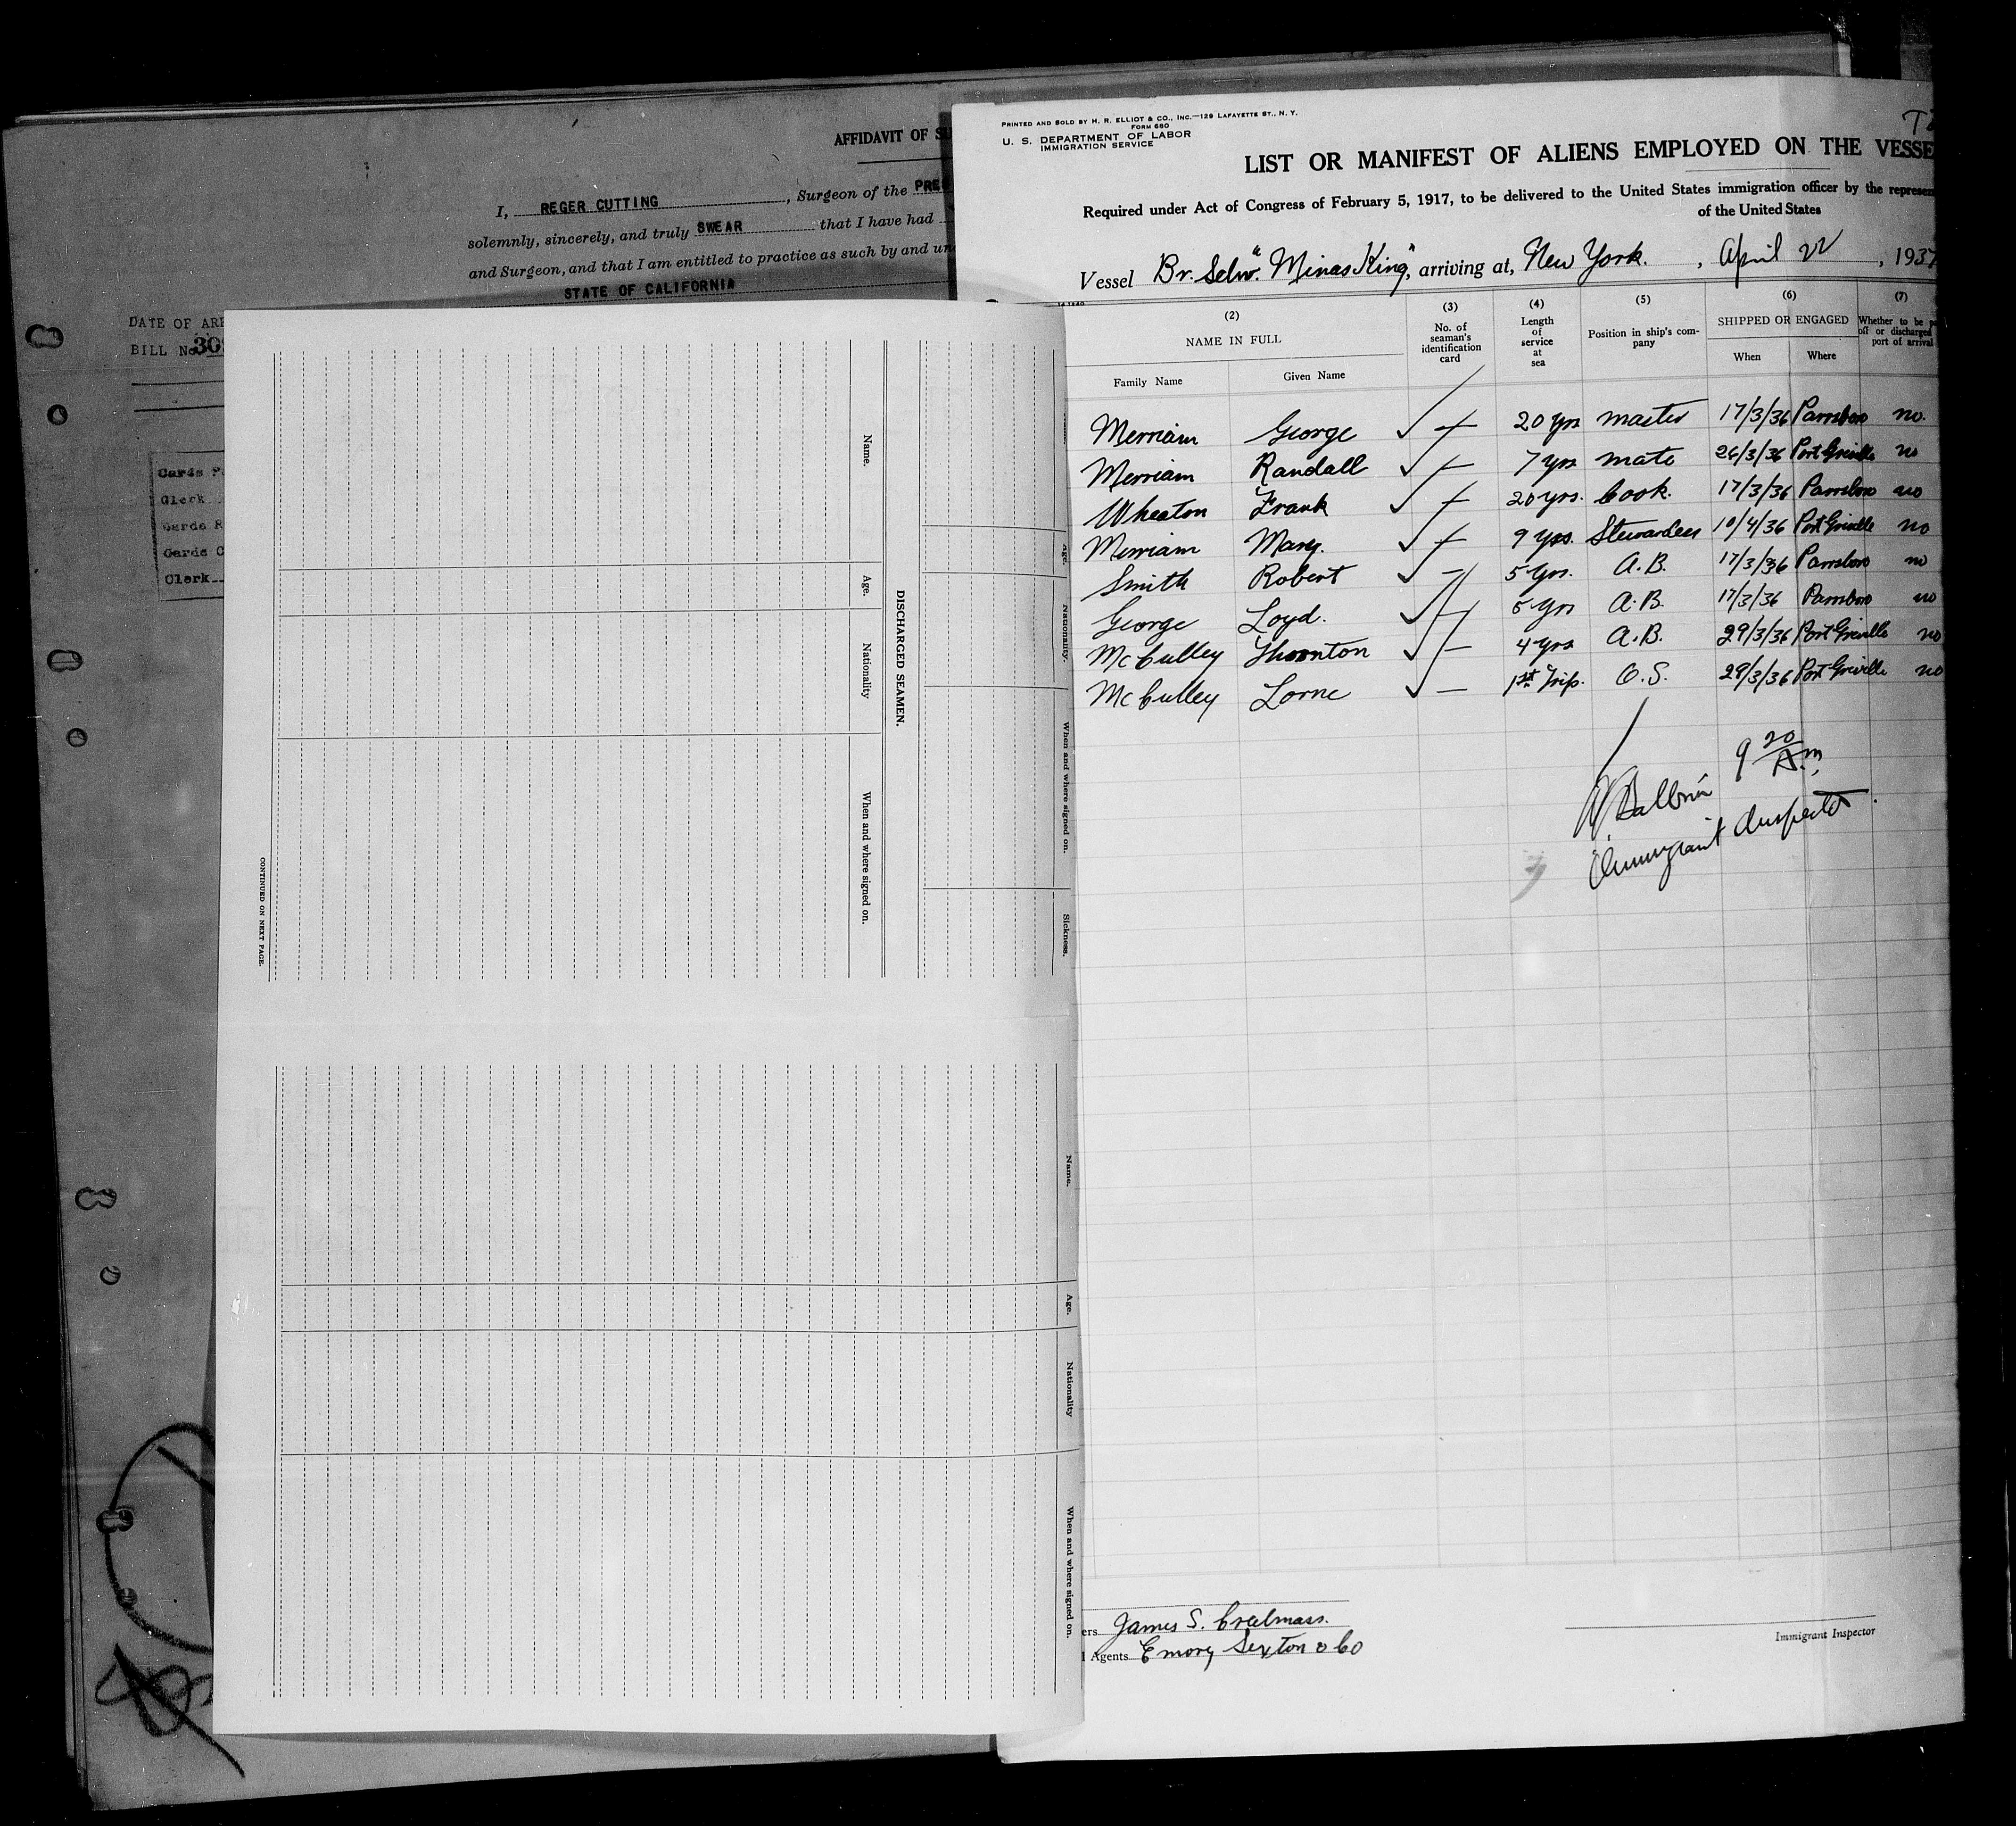 AFFIDAVIT OF
I, REGER CUTTING, Surgeon of the
solemnly, sincerely, and truly SWEAR that I have had
and Surgeon, and that I am entitled to practice as such by and
STATE OF CALIFORNIA
DATE OF
BILL No
Cards
Clerk
Cards R
Cards C
Clerk
Name.
Age.
Nationality
When and where signed on.
DISCHARGED SEAMEN.
Age.
Nationality.
When and where signed on.
Sickness.
CONTINUED ON NEXT PAGE.
Name.
Age.
Nationality
When and where signed on.
PRINTED AND SOLD BY H. R. ELLIOT & CO., INC.—129 LAFAYETTE ST., N. Y.
FORM 680
U. S. DEPARTMENT OF LABOR
IMMIGRATION SERVICE
LIST OR MANIFEST OF ALIENS EMPLOYED ON THE
Required under Act of Congress of February 5, 1917, to be delivered to the United States immigration officer by the
of the United States
Vessel Br. Schr. "Minas King", arriving at, New York. , April 22 , 1937
(2) (3) (4) (5) (6) (7)
NAME IN FULL
No. of seaman's identification card
Length of service at sea
Position in ship's company
SHIPPED OR ENGAGED
Whether to be
off or discharged
port of arrival
Family Name Given Name When Where
Merriam George 20 yrs master 17/3/36 Parrsboro no.
Merriam Randall 7 yrs mate 26/3/36 Port Greville no
Wheaton Frank 20 yrs. Cook. 17/3/36 Parrsboro no
Merriam Mary. 9 yrs. Stewardess 10/4/36 Port Greville no
Smith Robert 5 yrs. A.B. 17/3/36 Parrsboro no
George Loyd. 5 yrs A.B. 17/3/36 Parrsboro no
McCulley Thornton 4 yrs A.B. 29/3/36 Port Greville no
McCulley Lorne 1st Trip. O.S. 28/3/36 Port Greville no
9 20 A.m.
Immigrant Inspector
ers James S. Creelman.
l Agents Emory Sexton & Co
Immigrant Inspector